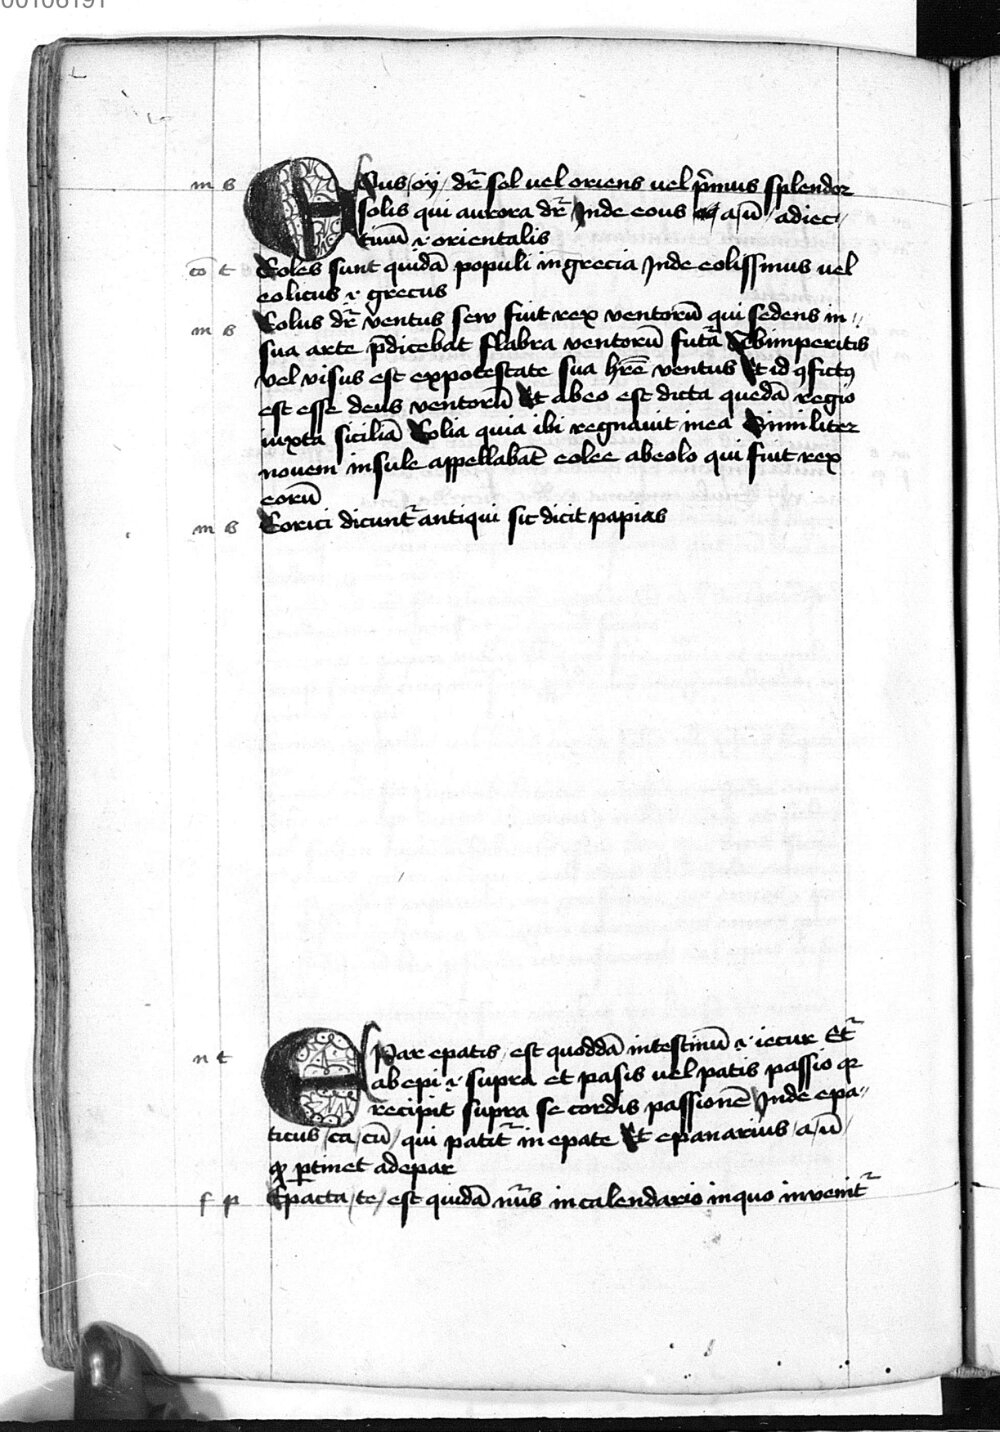 00106191
m s Eous / oy / dr̄ sol vel oriens vel p̄mus splendor
solis qui aurora dr̄ Inde eous a / ū / adiec
tiuū .i. orientalis
cō t Eoles sunt quidā populi in grecia Inde eolissimus vel
eolicus .i. grecus
m s Eolus dr̄ ventus seu fuit rex ventorū qui sedens in
sua arte p̄dicebat flabra ventorū futā Ab imperitis
vel visus est ex potestate sua hr̄e ventus Et id ꝯfictꝰ
est esse deus ventorū Et ab eo est dicta quedā regio
iuxta siciliā Eolia quia ibi regnauit in ea Similiter
nouem insule appellabāt eolee ab eolo qui fuit rex
eorū
m s Eorici dicunt̄ antiqui sic dicit papias
n t Epar epatis / est quoddā intestinū .i. iecur Et̄
ab epi .i. supra et pasis vel patis passio qꝛ
recipit supra se cordis passionē Inde epa
ticus / ca / cū / qui patit̄ in epate Et epanarius / a / ū /
qꝫ ꝑtinet ad epar
f p Epacta / te / est quidā nūs in calendario in quo inuenit̄